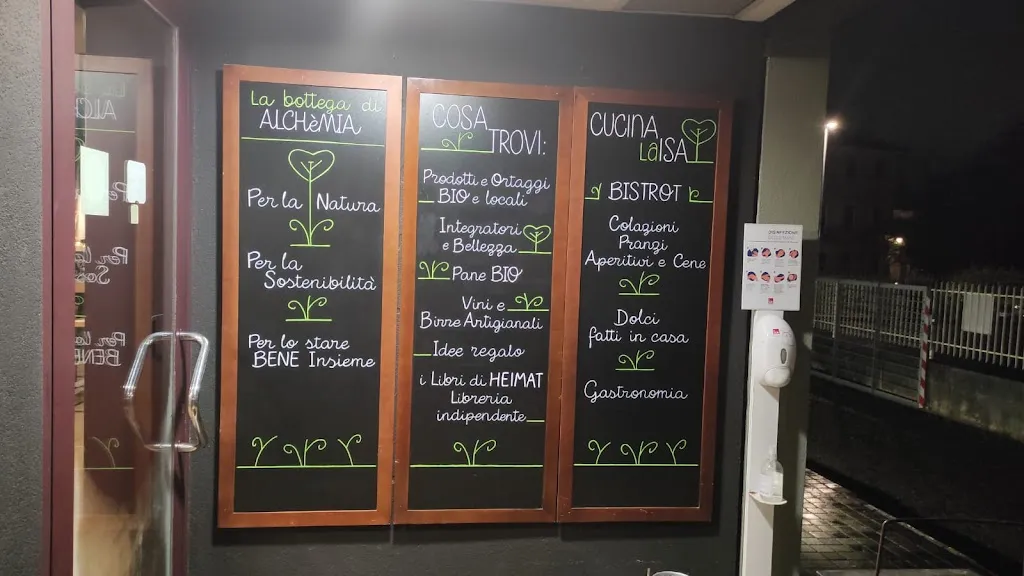 La bottega di
ALCHèMIA
Per la Natura
Per la
Sostenibilità
Per lo stare
BENE Insieme
COSA
TROVI:
Prodotti e Ortaggi
BIO e locali
Integratori
e Bellezza
Pane BIO
Vini e
Birre Artigianali
Idee regalo
i Libri di HEIMAT
Libreria
indipendente
CUCINA
LàISA
BISTROT
Colazioni
Pranzi
Aperitivi e Cene
Dolci
fatti in casa
Gastronomia